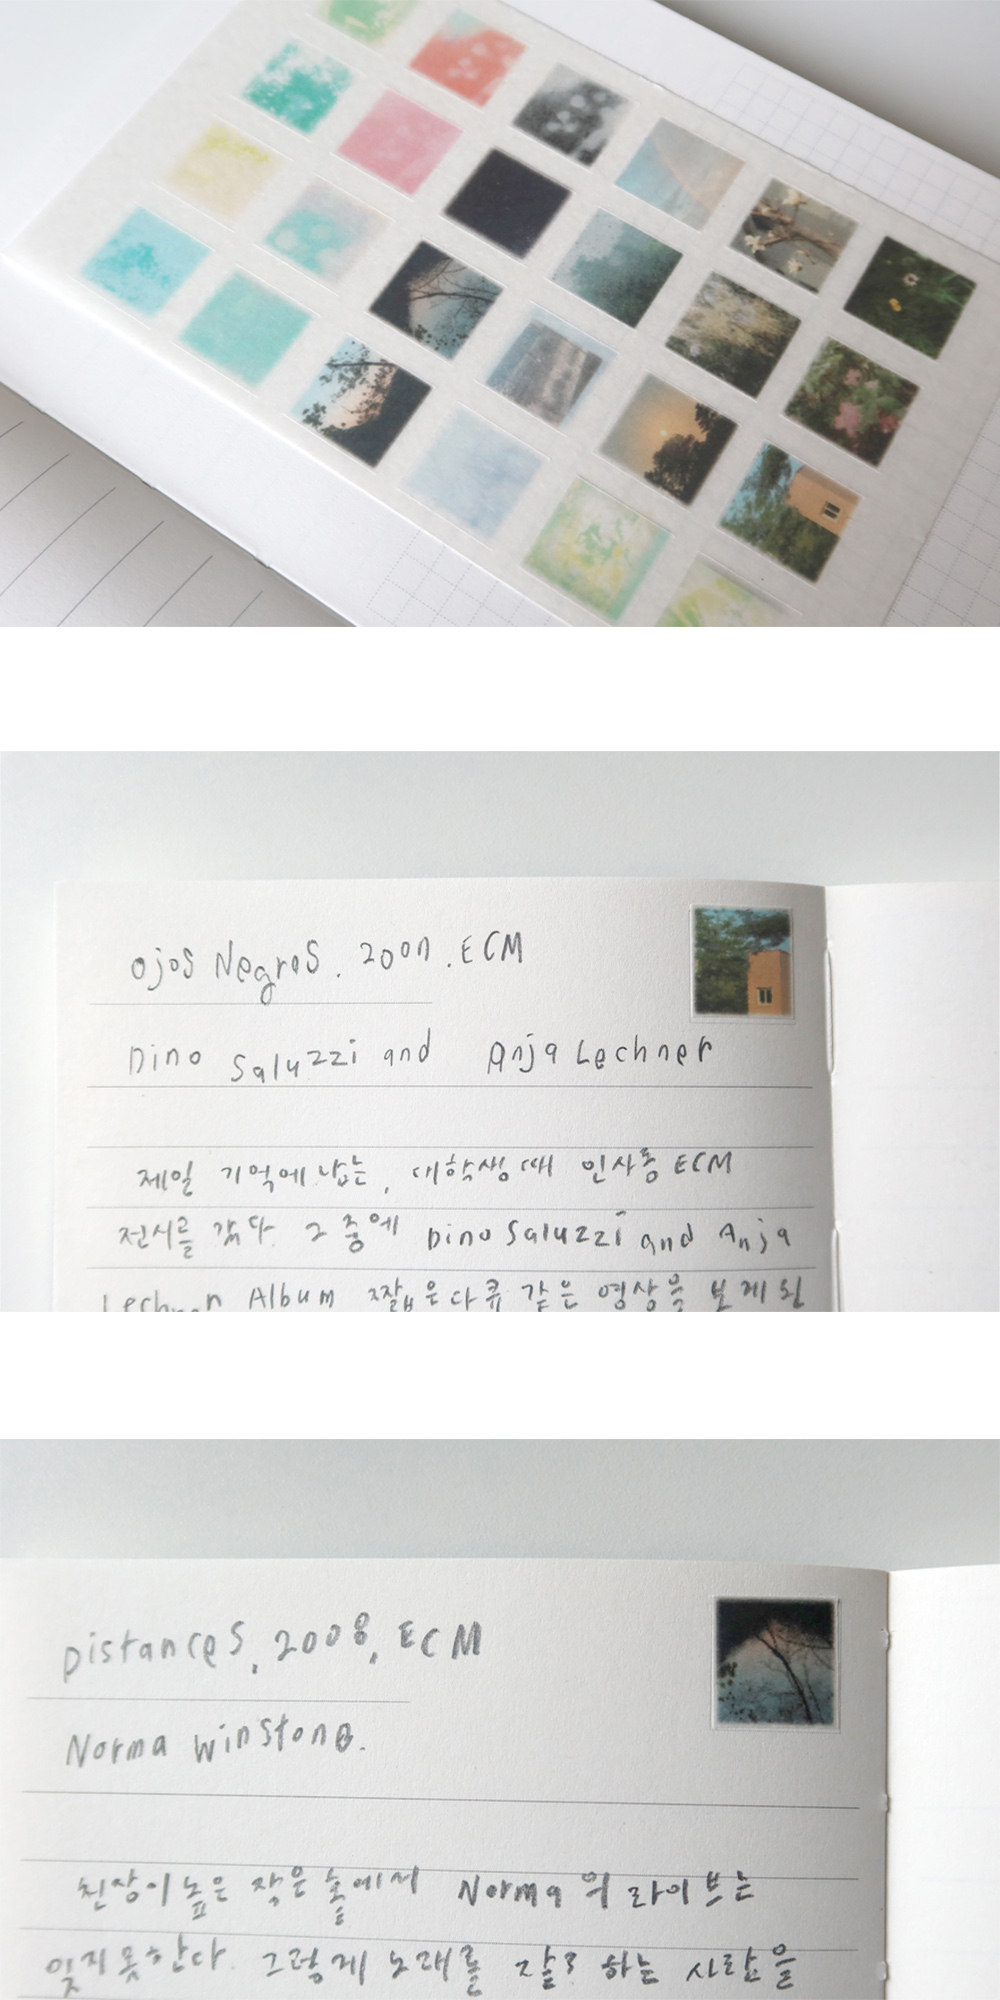 Ojos Negros. 2007. ECM
Dino Saluzzi and Anja Lechner
제일 기억에 남는, 대학생때 인사동 ECM
전시를 갔다. 그 중에 Dino Saluzzi and Anja
Lechner Album 짧은 다큐 같은 영상을 보게된
Distances, 2008, ECM
Norma Winstone.
천장이 높은 작은 홀에서 Norma의 라이브는
잊지 못한다. 그렇게 노래를 잘? 하는 사람을